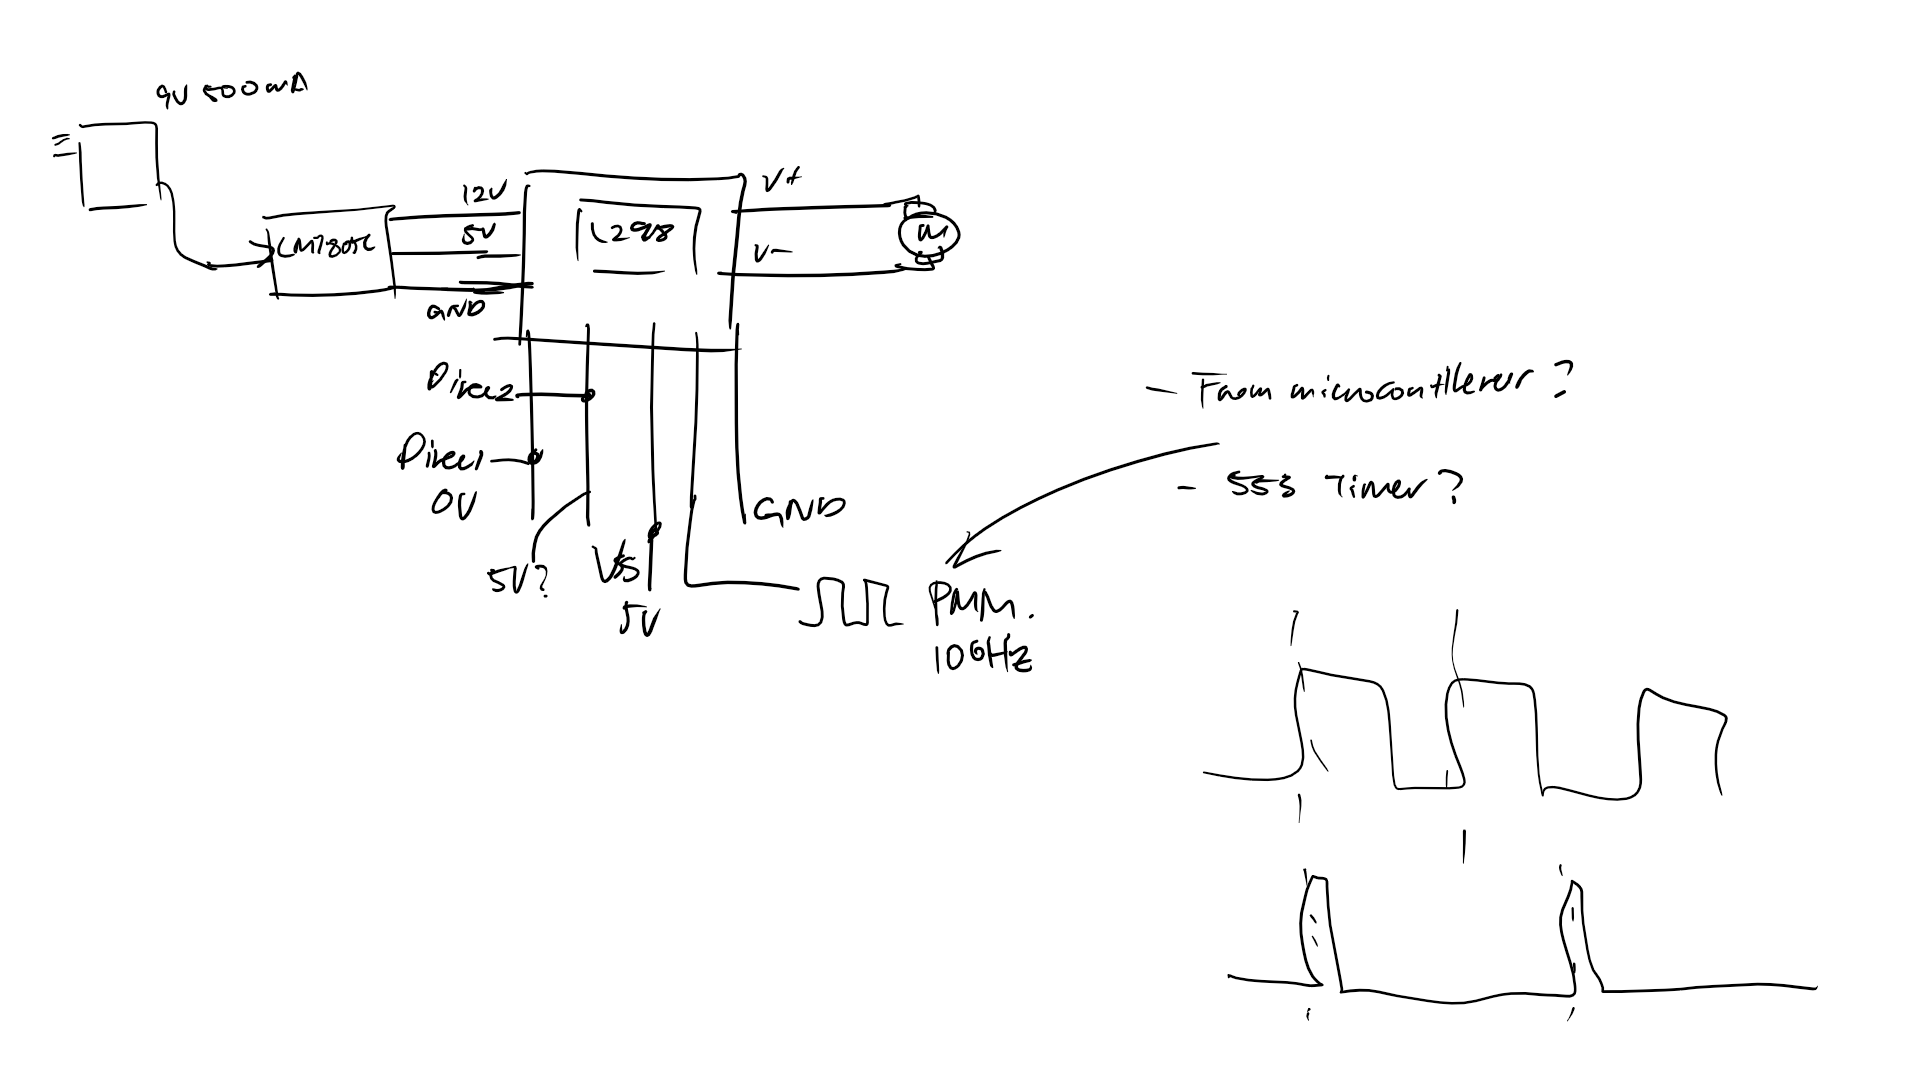 9V 500mA
12V
LM7805C
5V
GND
L298
V+
V-
M
Direc2
Direc1
0V
5V?
Vss
5V
GND
PMM.
100Hz
- From microcontllerer ?
- 555 Timer ?